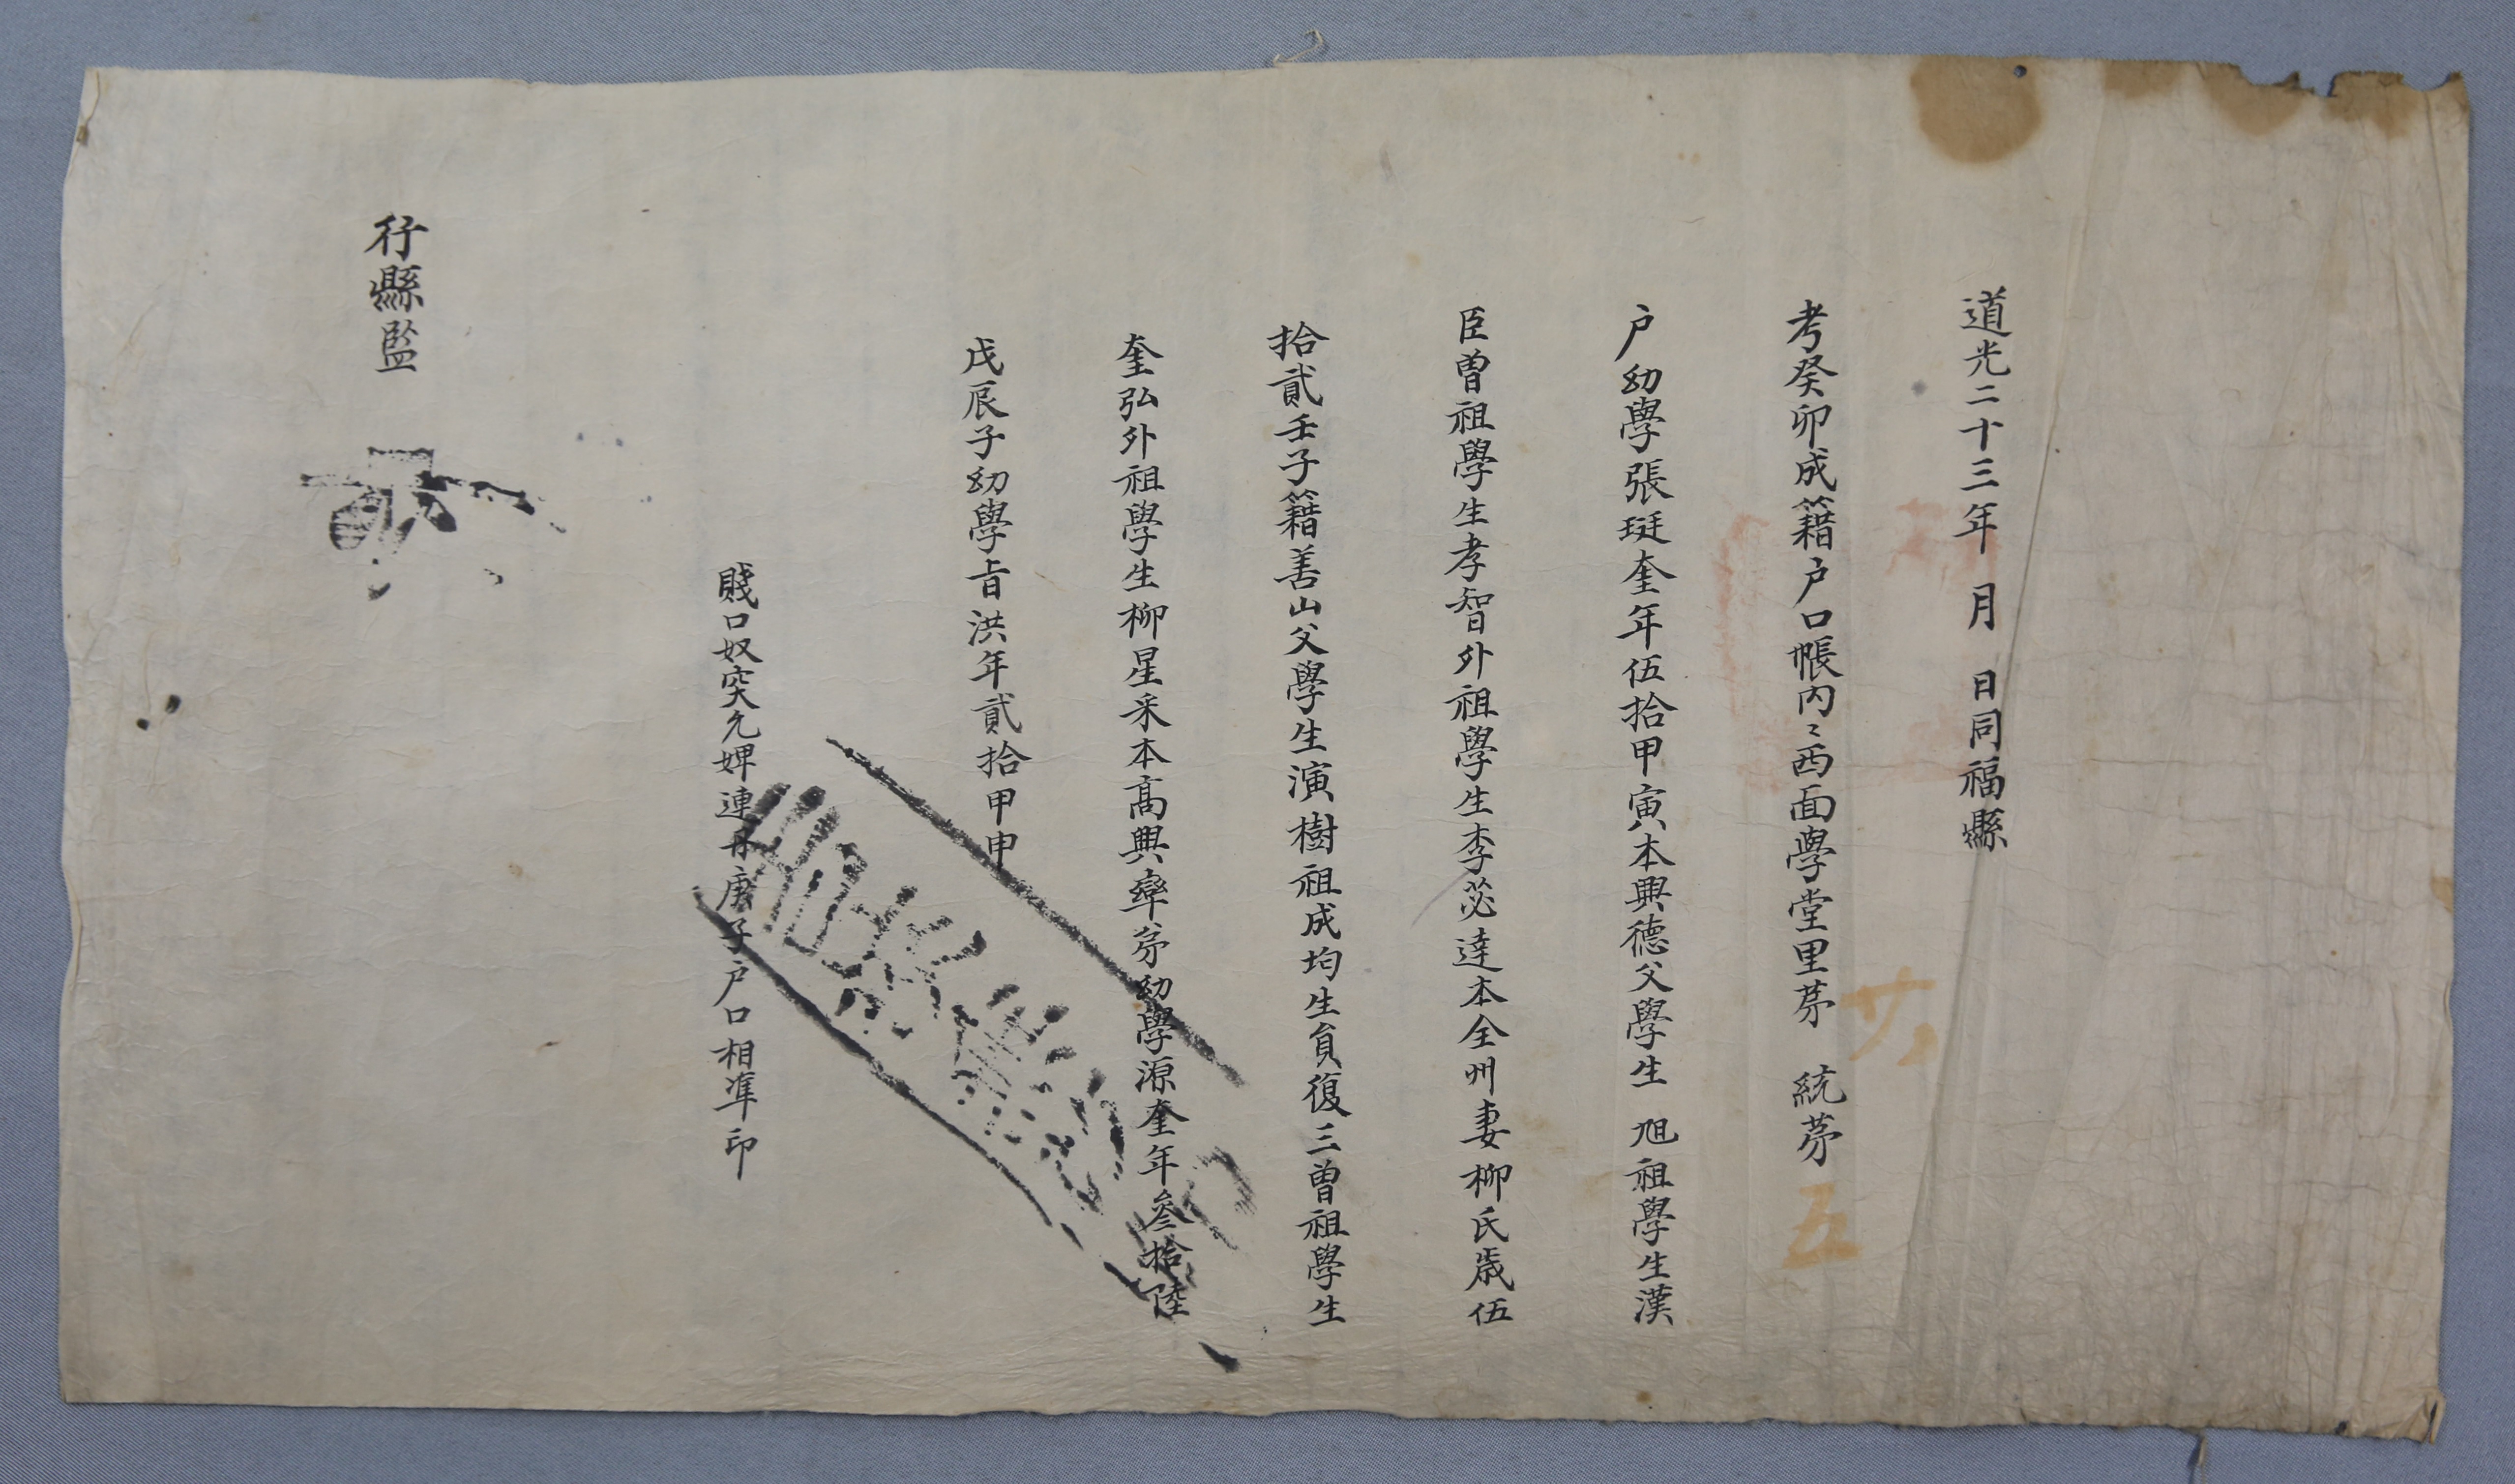 道光二十三年 月 日同福縣
考癸卯成籍户口帳內〻西面學堂里苐 統苐 五
户幼學張珽奎年伍拾甲寅本興德父學生 旭祖學生漢
臣曽祖學生孝智外祖學生李苾達本全州妻柳氏歲伍
拾貳壬子籍善山父學生演樹祖成均生員復三曽祖學生
奎弘外祖學生柳星采本髙興率苐幼學源奎年叄拾陸
戊辰子幼學洪年貳拾甲申
賤口奴突允婢連丹庚子户口相凖印
行縣監